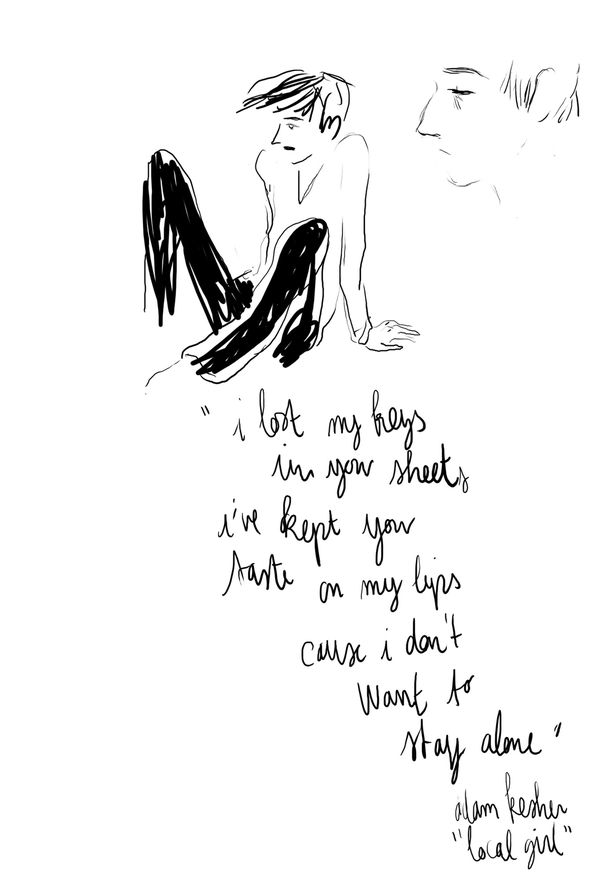 "i lost my keys
in your sheets
i've kept your
taste on my lips
cause i don't
want to
stay alone"
adam kesher
"local girl"